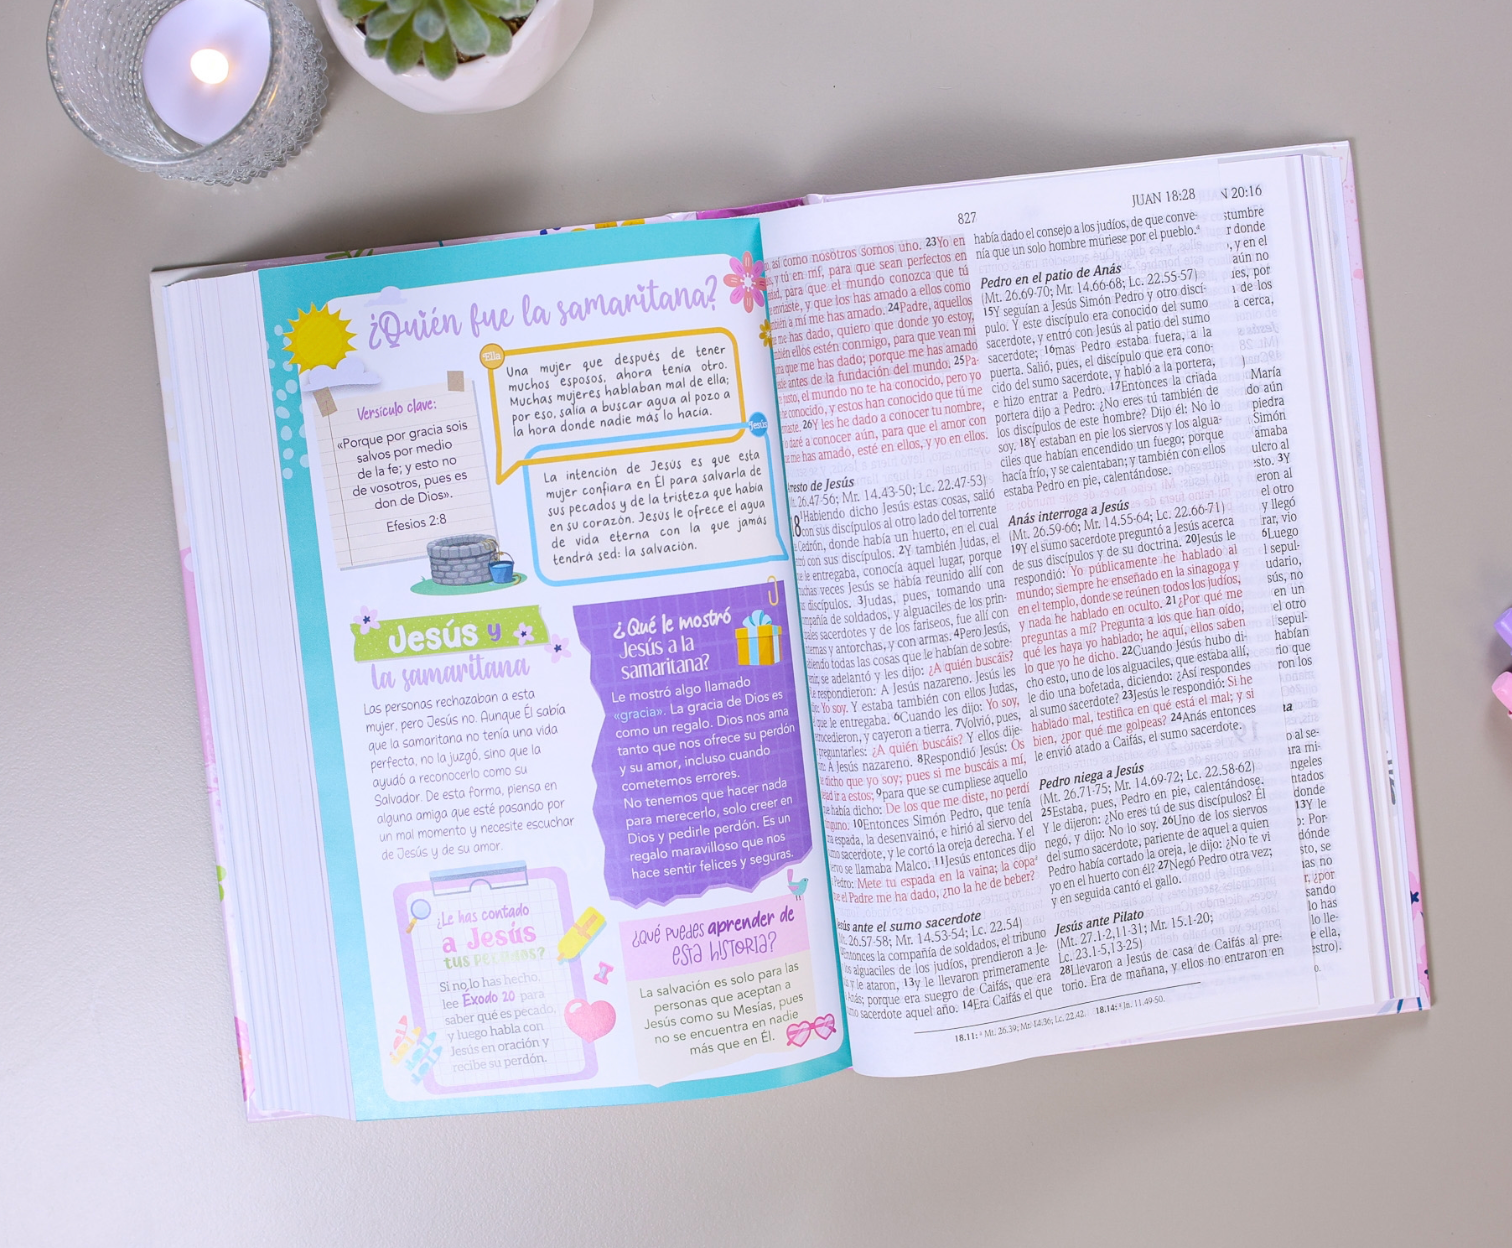 ¿Quién fue la samaritana?
Versículo clave:
«Porque por gracia sois
salvos por medio
de la fe; y esto no
de vosotros, pues es
don de Dios».
Efesios 2:8
Ella
Una mujer que después de tener
muchos esposos, ahora tenía otro.
Muchas mujeres hablaban mal de ella;
por eso, salía a buscar agua al pozo a
la hora donde nadie más lo hacía.
Jesús
La intención de Jesús es que esta
mujer confiara en Él para salvarla de
sus pecados y de la tristeza que había
en su corazón. Jesús le ofrece el agua
de vida eterna con la que jamás
tendrá sed: la salvación.
Jesús y
la samaritana
Las personas rechazaban a esta
mujer, pero Jesús no. Aunque Él sabía
que la samaritana no tenía una vida
perfecta, no la juzgó, sino que la
ayudó a reconocerlo como su
Salvador. De esta forma, piensa en
alguna amiga que esté pasando por
un mal momento y necesite escuchar
de Jesús y de su amor.
¿Qué le mostró
Jesús a la
samaritana?
Le mostró algo llamado
«gracia». La gracia de Dios es
como un regalo. Dios nos ama
tanto que nos ofrece su perdón
y su amor, incluso cuando
cometemos errores.
No tenemos que hacer nada
para merecerlo, solo creer en
Dios y pedirle perdón. Es un
regalo maravilloso que nos
hace sentir felices y seguras.
¿Le has contado
a Jesús
tus pecados?
Si no lo has hecho,
lee Exodo 20 para
saber qué es pecado,
y luego habla con
Jesús en oración y
recibe su perdón.
¿Qué puedes aprender de
esta historia?
La salvación es solo para las
personas que aceptan a
Jesús como su Mesías, pues
no se encuentra en nadie
más que en Él.
827
JUAN 18:28
así como nosotros somos uno. 23Yo en
y tú en mí, para que sean perfectos en
para que el mundo conozca que tú
enviaste, y que los has amado a ellos como
a mí me has amado. 24Padre, aquellos
me has dado, quiero que donde yo estoy,
ellos estén conmigo, para que vean mi
que me has dado; porque me has amado
antes de la fundación del mundo. 25Pa-
justo, el mundo no te ha conocido, pero yo
he conocido, y estos han conocido que tú me
26Y les he dado a conocer tu nombre,
daré a conocer aún, para que el amor con
me has amado, esté en ellos, y yo en ellos.
de Jesús
26.47-56; Mr. 14.43-50; Lc. 22.47-53)
1Habiendo dicho Jesús estas cosas, salió
con sus discípulos al otro lado del torrente
Cedrón, donde había un huerto, en el cual
con sus discípulos. 2Y también Judas, el
le entregaba, conocía aquel lugar, porque
veces Jesús se había reunido allí con
discípulos. 3Judas, pues, tomando una
compañía de soldados, y alguaciles de los prin-
sacerdotes y de los fariseos, fue allí con
y antorchas, y con armas. 4Pero Jesús,
todas las cosas que le habían de sobre-
se adelantó y les dijo: ¿A quién buscáis?
respondieron: A Jesús nazareno. Jesús les
Yo soy. Y estaba también con ellos Judas,
que le entregaba. 6Cuando les dijo: Yo soy,
y cayeron a tierra. 7Volvió, pues,
preguntarles: ¿A quién buscáis? Y ellos dije-
A Jesús nazareno. 8Respondió Jesús: Os
dicho que yo soy; pues si me buscáis a mí,
ir a estos; 9para que se cumpliese aquello
había dicho: De los que me diste, no perdí
10Entonces Simón Pedro, que tenía
espada, la desenvainó, e hirió al siervo del
sacerdote, y le cortó la oreja derecha. Y el
se llamaba Malco. 11Jesús entonces dijo
Pedro: Mete tu espada en la vaina; la copa
el Padre me ha dado, ¿no la he de beber?
ante el sumo sacerdote
26.57-58; Mr. 14.53-54; Lc. 22.54)
Entonces la compañía de soldados, el tribuno
alguaciles de los judíos, prendieron a Je-
y le ataron, 13y le llevaron primeramente
Anás; porque era suegro de Caifás, que era
sacerdote aquel año. 14Era Caifás el que
había dado el consejo a los judíos, de que conve-
nía que un solo hombre muriese por el pueblo.
Pedro en el patio de Anás
(Mt. 26.69-70; Mr. 14.66-68; Lc. 22.55-57)
15Y seguían a Jesús Simón Pedro y otro discí-
pulo. Y este discípulo era conocido del sumo
sacerdote, y entró con Jesús al patio del sumo
sacerdote; 16mas Pedro estaba fuera, a la
puerta. Salió, pues, el discípulo que era cono-
cido del sumo sacerdote, y habló a la portera,
e hizo entrar a Pedro. 17Entonces la criada
portera dijo a Pedro: ¿No eres tú también de
los discípulos de este hombre? Dijo él: No lo
soy. 18Y estaban en pie los siervos y los algua-
ciles que habían encendido un fuego; porque
hacía frío, y se calentaban; y también con ellos
estaba Pedro en pie, calentándose.
Anás interroga a Jesús
(Mt. 26.59-66; Mr. 14.55-64; Lc. 22.66-71)
19Y el sumo sacerdote preguntó a Jesús acerca
de sus discípulos y de su doctrina. 20Jesús le
respondió: Yo públicamente he hablado al
mundo; siempre he enseñado en la sinagoga y
en el templo, donde se reúnen todos los judíos,
y nada he hablado en oculto. 21¿Por qué me
preguntas a mí? Pregunta a los que han oído,
qué les haya yo hablado; he aquí, ellos saben
lo que yo he dicho. 22Cuando Jesús hubo di-
cho esto, uno de los alguaciles, que estaba allí,
le dio una bofetada, diciendo: ¿Así respondes
al sumo sacerdote? 23Jesús le respondió: Si he
hablado mal, testifica en qué está el mal; y si
bien, ¿por qué me golpeas? 24Anás entonces
le envió atado a Caifás, el sumo sacerdote.
Pedro niega a Jesús
(Mt. 26.71-75; Mr. 14.69-72; Lc. 22.58-62)
25Estaba, pues, Pedro en pie, calentándose.
Y le dijeron: ¿No eres tú de sus discípulos? Él
negó, y dijo: No lo soy. 26Uno de los siervos
del sumo sacerdote, pariente de aquel a quien
Pedro había cortado la oreja, le dijo: ¿No te vi
yo en el huerto con él? 27Negó Pedro otra vez;
y en seguida cantó el gallo.
Jesús ante Pilato
(Mt. 27.1-2,11-31; Mr. 15.1-20;
Lc. 23.1-5,13-25)
28Llevaron a Jesús de casa de Caifás al pre-
torio. Era de mañana, y ellos no entraron en
18.11: Mt. 26.39; Mr. 14.36; Lc. 22.42. 18.14: Jn. 11.49-50.
20:16
donde
, y en el
aún no
por
de los
a cerca,
María
aún
piedra
Simón
amaba
al
esto. 3Y
al
el otro
y llegó
vio
6Luego
sús, no
en un
el otro
habían
que
los
al se-
donde
13Y le
Por-
dónde
se
no
¿por
lo has
ella,